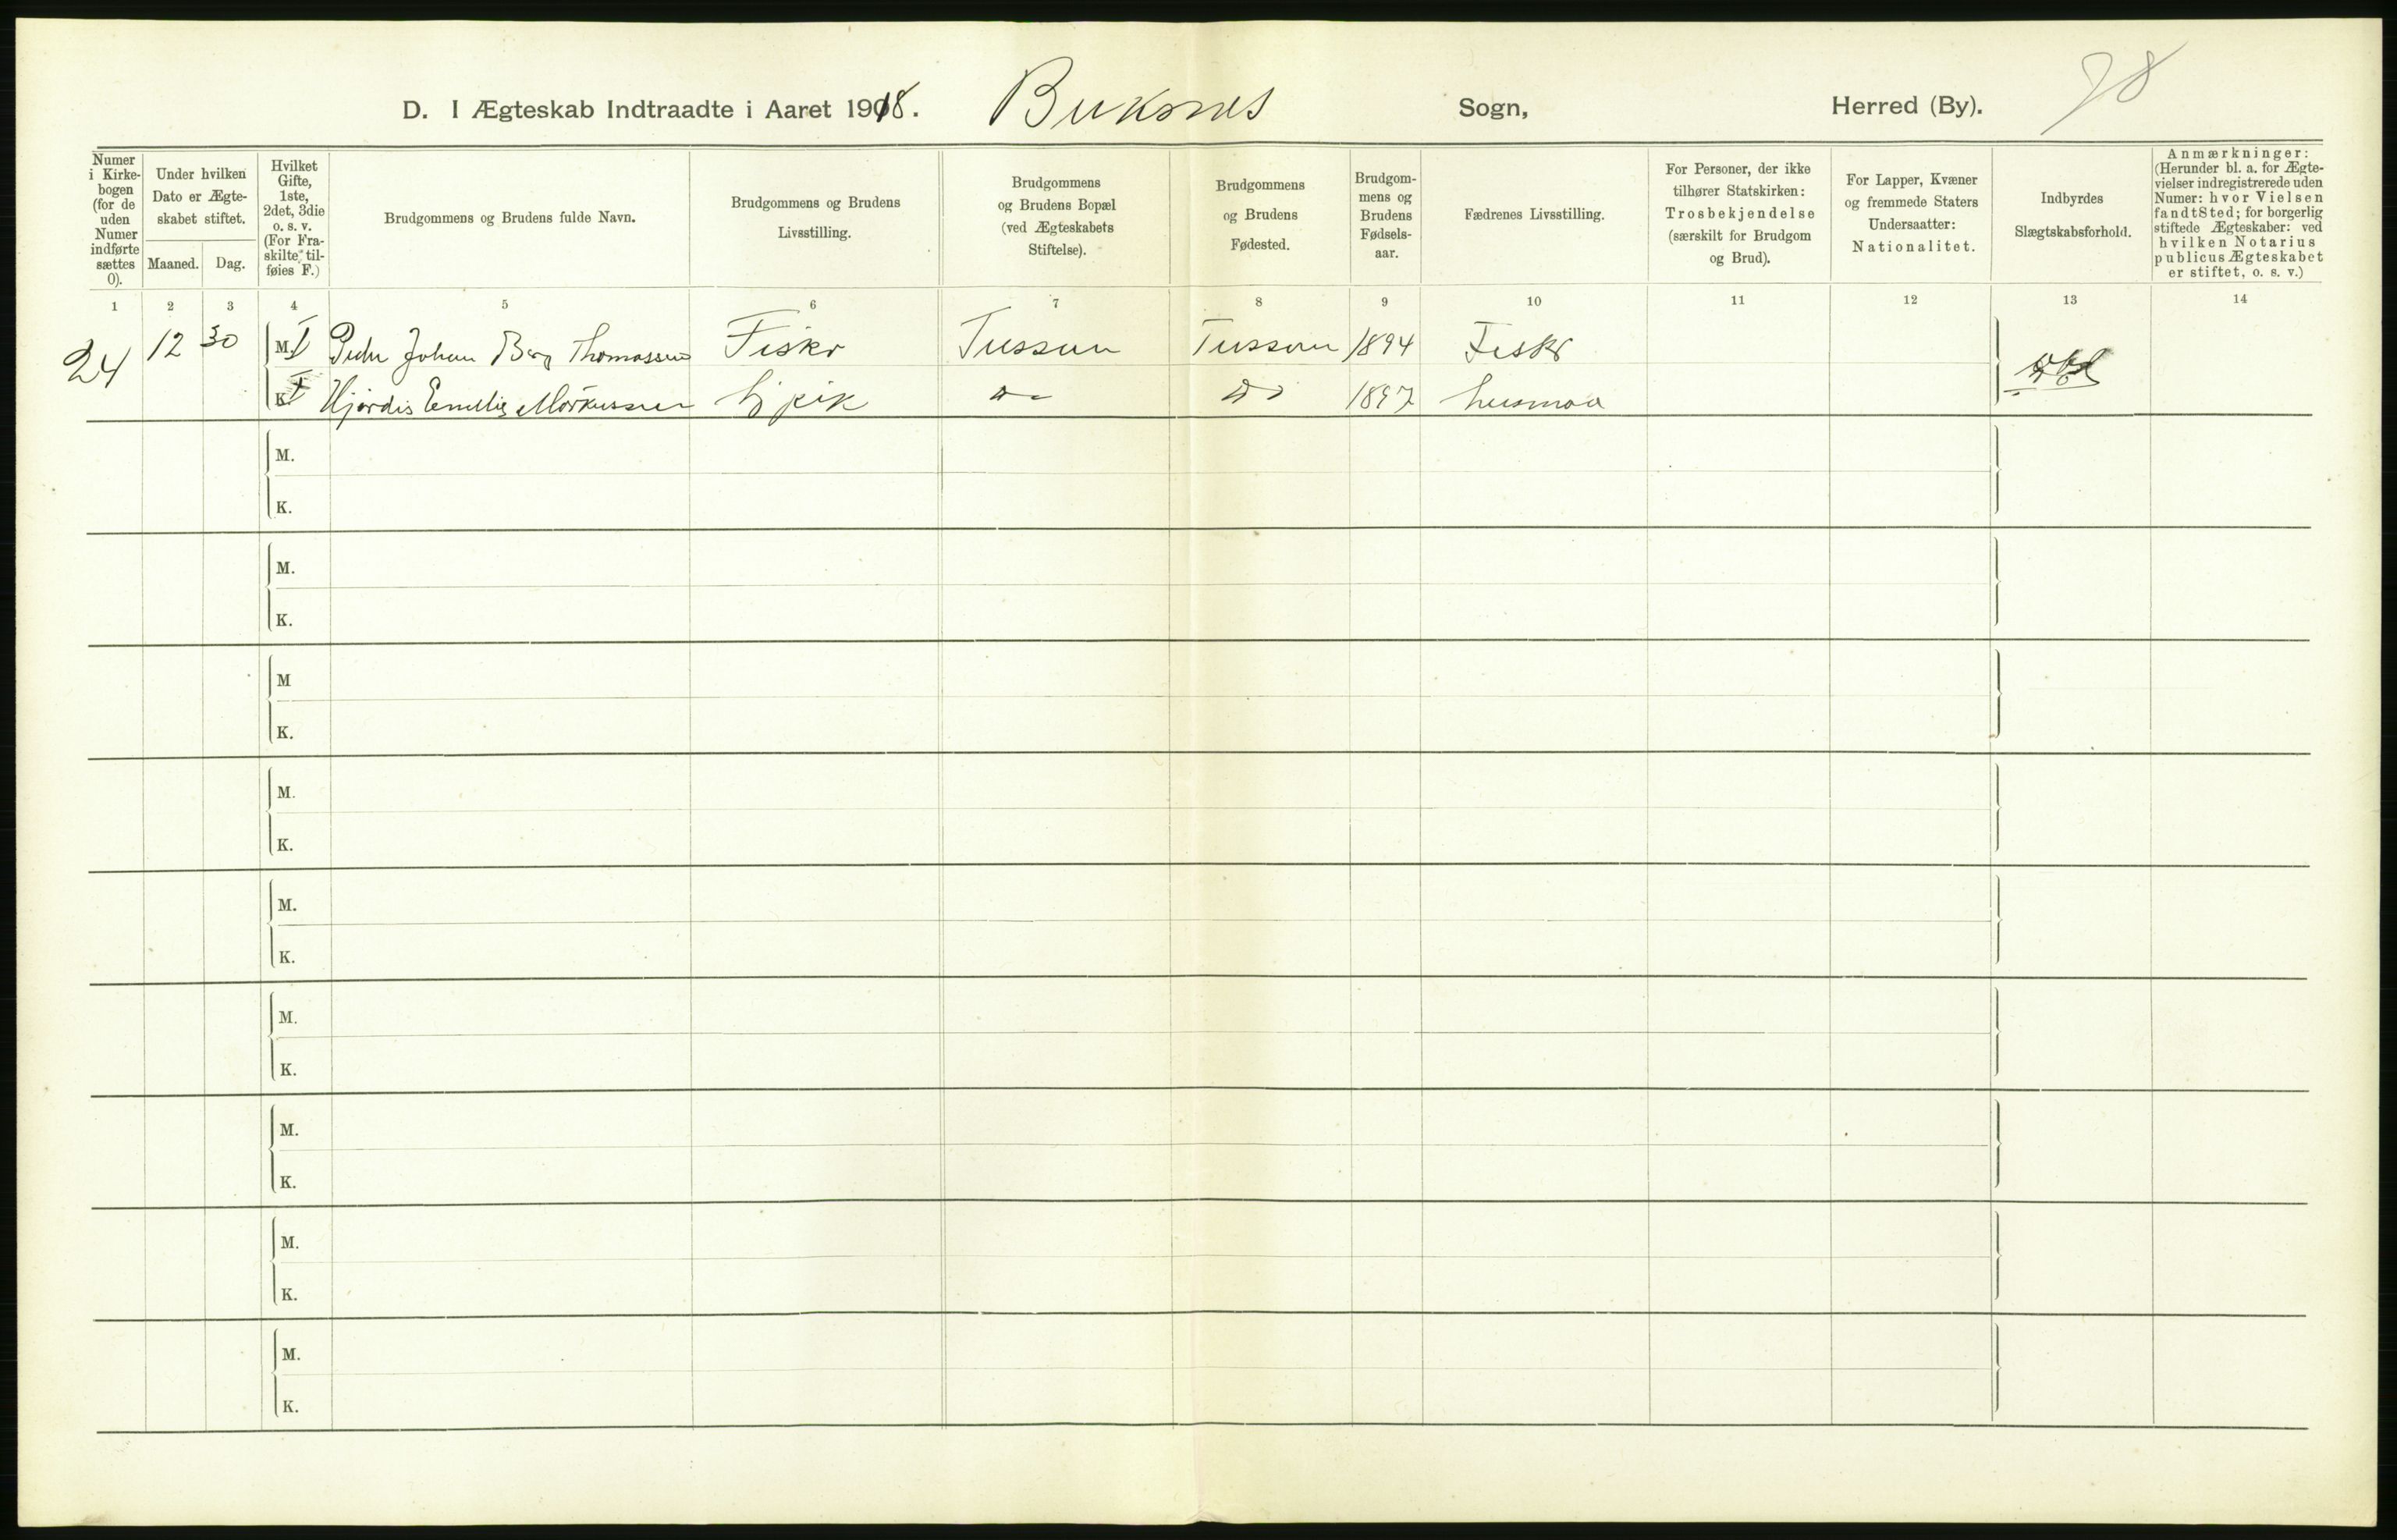 D. I Ægteskab Indtraadte i Aaret 1918. Buksnes Sogn, Herred (By). 78
Numer i Kirkebogen (for de uden Numer indførte sættes 0).
Under hvilken Dato er Ægteskabet stiftet.
Maaned. Dag.
Hvilket Gifte, 1ste, 2det, 3die o. s. v. (For Fraskilte tilføies F.)
Brudgommens og Brudens fulde Navn.
Brudgommens og Brudens Livsstilling.
Brudgommens og Brudens Bopæl (ved Ægteskabets Stiftelse).
Brudgommens og Brudens Fødested.
Brudgommens og Brudens Fødselsaar.
Fædrenes Livsstilling.
For Personer, der ikke tilhører Statskirken: Trosbekjendelse (særskilt for Brudgom og Brud).
For Lapper, Kvæner og fremmede Staters Undersaatter: Nationalitet.
Indbyrdes Slægtskabsforhold.
Anmærkninger: (Herunder bl. a. for Ægtevielser indregistrerede uden Numer: hvor Vielsen fandt Sted; for borgerlig stiftede Ægteskaber: ved hvilken Notarius publicus Ægteskabet er stiftet, o. s. v.)
1 2 3 4 5 6 7 8 9 10 11 12 13 14
24 12 30 M. I Peder Johan Berg Thomassen Fisker Tussun Tussun 1894 Fisker
K. I Hjørdis Emilie Markussen Do Do 1897
M.
K.
M.
K.
M
K.
M.
K.
M.
K.
M.
K.
M.
K.
M.
K.
M.
K.